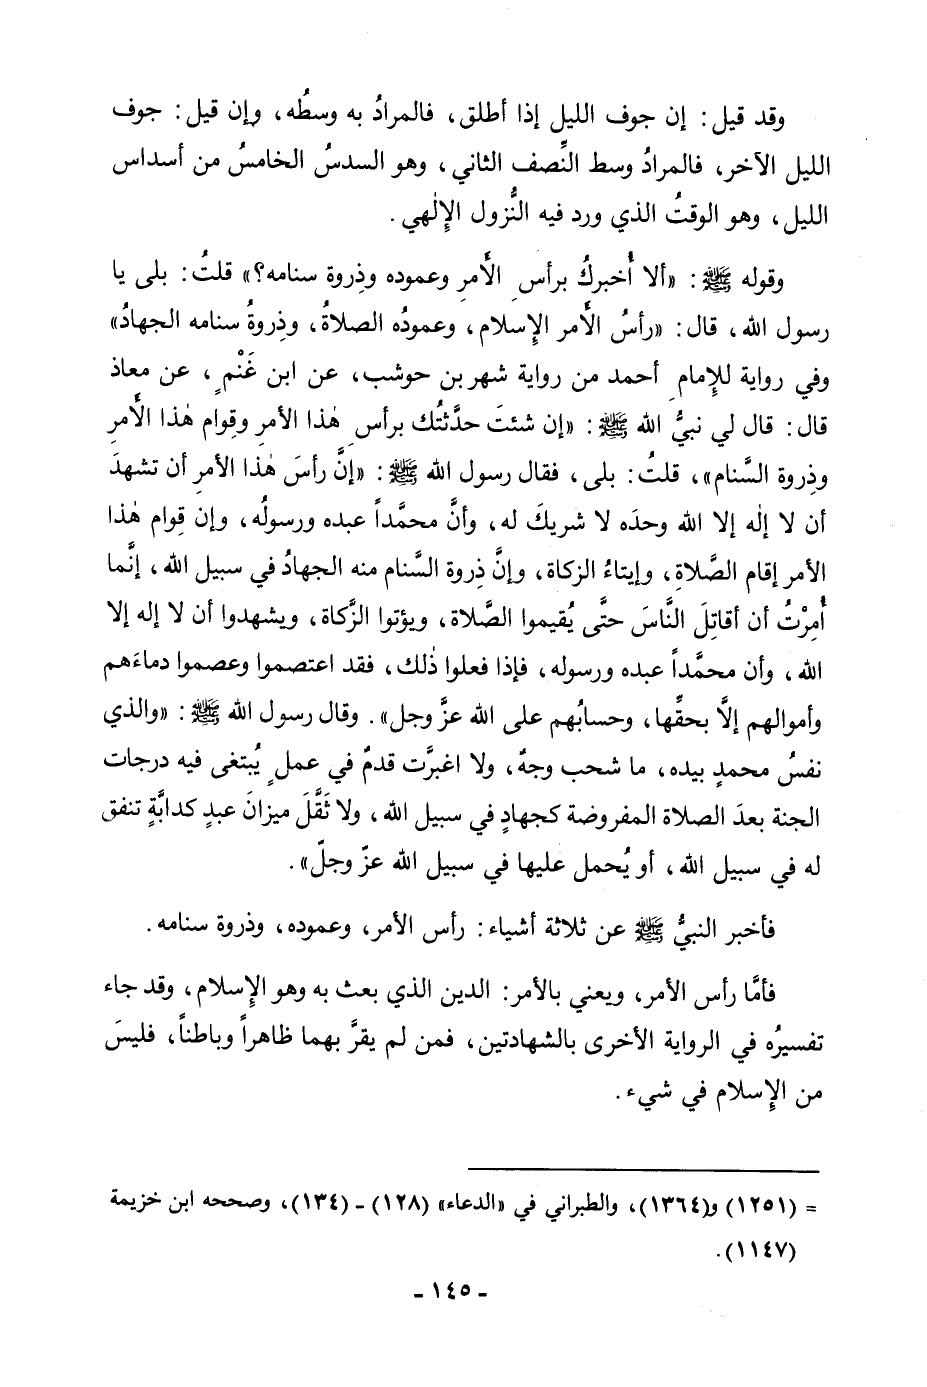 وقد قيل: إن جوف الليل إذا أطلق، فالمرادُ به وسطُه، وإن قيل: جوف
الليل الآخر، فالمرادُ وسط النِّصف الثاني، وهو السدسُ الخامسُ من أسداس
الليل، وهو الوقتُ الذي ورد فيه النُّزول الإِلٰهي.
وقوله ﷺ: «ألا أُخبركُ برأسِ الأَمرِ وعموده وذِروة سنامه؟» قلتُ: بلى يا
رسول الله، قال: «رأسُ الأَمر الإِسلام، وعمودُه الصلاةُ، وذِروةُ سنامه الجهادُ»
وفي رواية للإِمامِ أحمد من رواية شهر بن حوشب، عن ابن غَنْمٍ، عن معاذ
قال: قال لي نبيُّ الله ﷺ: «إن شئتَ حدَّثتُك برأسِ هٰذا الأمرِ وقِوام هٰذا الأَمرِ
وذِروة السَّنام»، قلتُ: بلى، فقال رسول الله ﷺ: «إنَّ رأسَ هٰذا الأمرِ أن تشهدَ
أن لا إلٰه إلا الله وحدَه لا شريكَ له، وأنَّ محمَّداً عبده ورسولُه، وإن قِوام هٰذا
الأمر إقام الصَّلاةِ، وإيتاءُ الزكاة، وإنَّ ذِروة السَّنام منه الجهادُ في سبيل الله، إنَّما
أُمِرْتُ أن أقاتِلَ النَّاسَ حتَّى يُقيموا الصَّلاة، ويؤتوا الزَّكاة، ويشهدوا أن لا إله إلا
الله، وأن محمَّداً عبده ورسوله، فإذا فعلوا ذٰلك، فقد اعتصموا وعصموا دماءَهم
وأموالهم إلَّا بحقِّها، وحسابُهم على الله عزَّ وجل». وقال رسول الله ﷺ: «والذي
نفسُ محمدٍ بيده، ما شحب وجهٌ، ولا اغبرَّت قدمٌ في عملٍ يُبتغى فيه درجات
الجنة بعدَ الصلاة المفروضة كجهادٍ في سبيل الله، ولا ثَقَّلَ ميزانَ عبدٍ كدابَّةٍ تنفق
له في سبيل الله، أو يُحمل عليها في سبيل الله عزّ وجلّ».
فأخبر النبيُّ ﷺ عن ثلاثة أشياء: رأس الأمر، وعموده، وذروة سنامه.
فأمَّا رأس الأمر، ويعني بالأمر: الدين الذي بعث به وهو الإِسلام، وقد جاء
تفسيرُه في الرواية الأخرى بالشهادتين، فمن لم يقرَّ بهما ظاهراً وباطناً، فليسَ
من الإِسلام في شيء.
= (١٢٥١) و(١٣٦٤)، والطبراني في «الدعاء» (١٢٨) ـ (١٣٤)، وصححه ابن خزيمة
(١١٤٧).
ـ ١٤٥ ـ